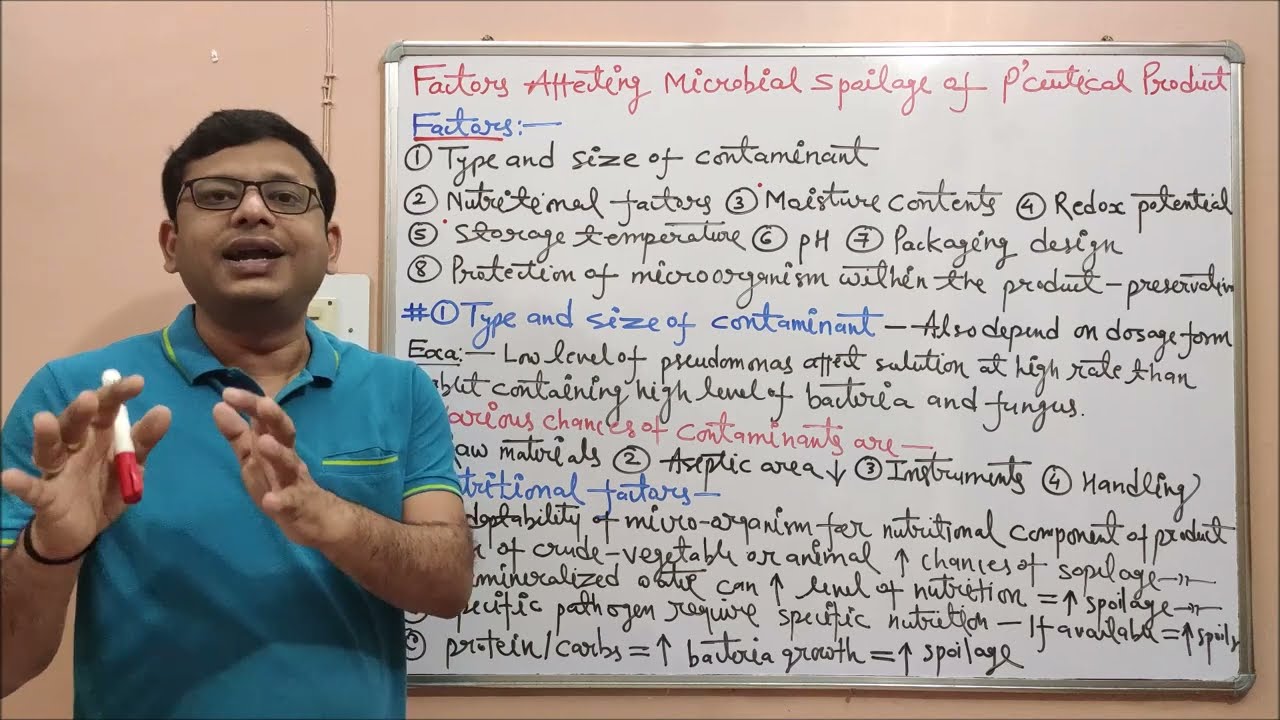 Factors Affecting Microbial Spoilage of P'ceutical Product
Factors:—
① Type and size of contaminant
② Nutritional factors ③ Moisture Contents ④ Redox potential
⑤ Storage temperature ⑥ pH ⑦ Packaging design
⑧ Protection of microorganism within the product - preservation
# ① Type and size of contaminant — Also depend on dosage form
Exa:— Low level of pseudomonas affect solution at high rate than
containing high level of bacteria and fungus.
chances of contaminants are —
materials ② Aseptic area ↓ ③ Instruments ④ Handling
factors —
of micro-organism for nutritional component of product
of crude-vegetable or animal ↑ chances of sopilage
can ↑ level of nutrition = ↑ spoilage
pathogen require specific nutrition — If available = ↑ spoils
protein/carbs = ↑ bacteria growth = ↑ spoilage